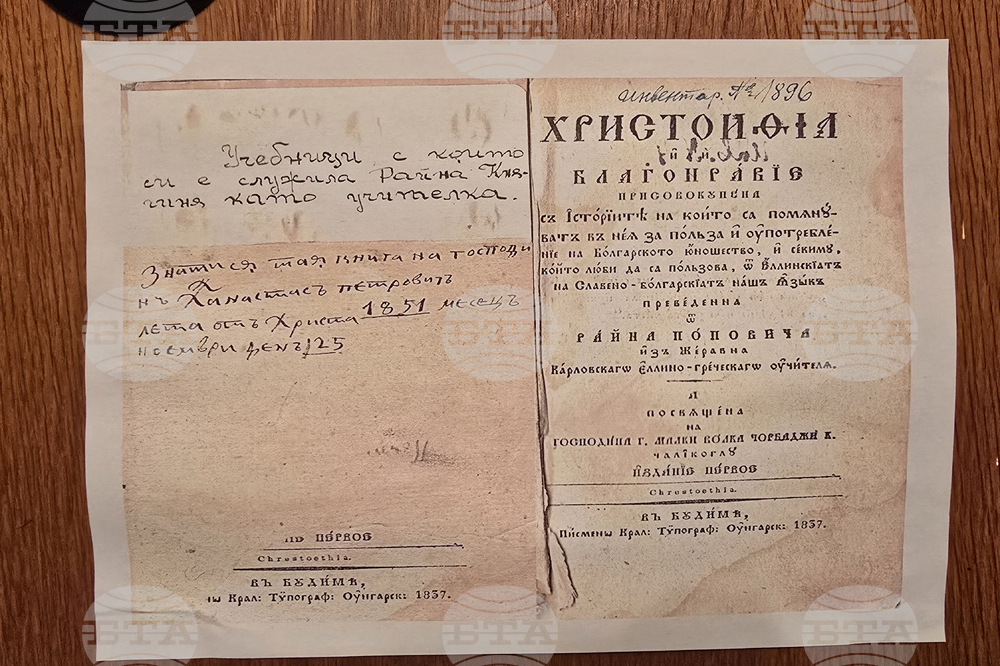 Учебници с които
си е служила Райна Кня-
гиня като учителка.
Знатися тая книга на господи
нъ Ханастасъ петровичъ
лета отъ Христа 1851 месецъ
ноември денъ 25
ІЕ ПЕ́РВОЕ
Chrestoethia.
ВЪ БꙊДИ́МѢ,
ны Крал: Тѷпограф: Оу҆нгарск: 1837.
инвентар. № 1896
ХРИСТОИѲІА
И҆ЛИ́
БЛАГОНРА́ВІЕ
ПРИСОВОКꙊПЕНА
съ І҆сто́рїитѣ на който са помѧнꙋ́-
ватъ въ не́ѧ за по́льза и҆ оу҆потребле́-
нїе на Бо́лгарското ю҆ношество, и҆ се́кимꙋ,
ко́йто лю́би да са по́льзова, ѿ Е҆́ллинскїатъ
на Славено-бо́лгарскїатъ на́шъ ѧ҆зы́къ
ПРЕВЕ́ДЕННА
ѿ
РА́ЙНА ПО́ПОВИЧА
и҆зъ Же́равна
Ка́рловскагѡ є҆́ллино-гре́ческагѡ оу҆чи́телѧ.
А҆
ПОСВѦЩЕ́НА
НА
ГОСПОДИ́НА Г. МАЛКИ ВОЛКА ЧОРБАДЖИ В.
ЧАЛІКОГЛꙊ
И҆ЗДА́НІЕ ПЕ́РВОЕ
Chrestoethia.
ВЪ БꙊДИ́МѢ,
Пи́смены Крал: Тѷпограф: Оу҆нгарск: 1837.
БТА